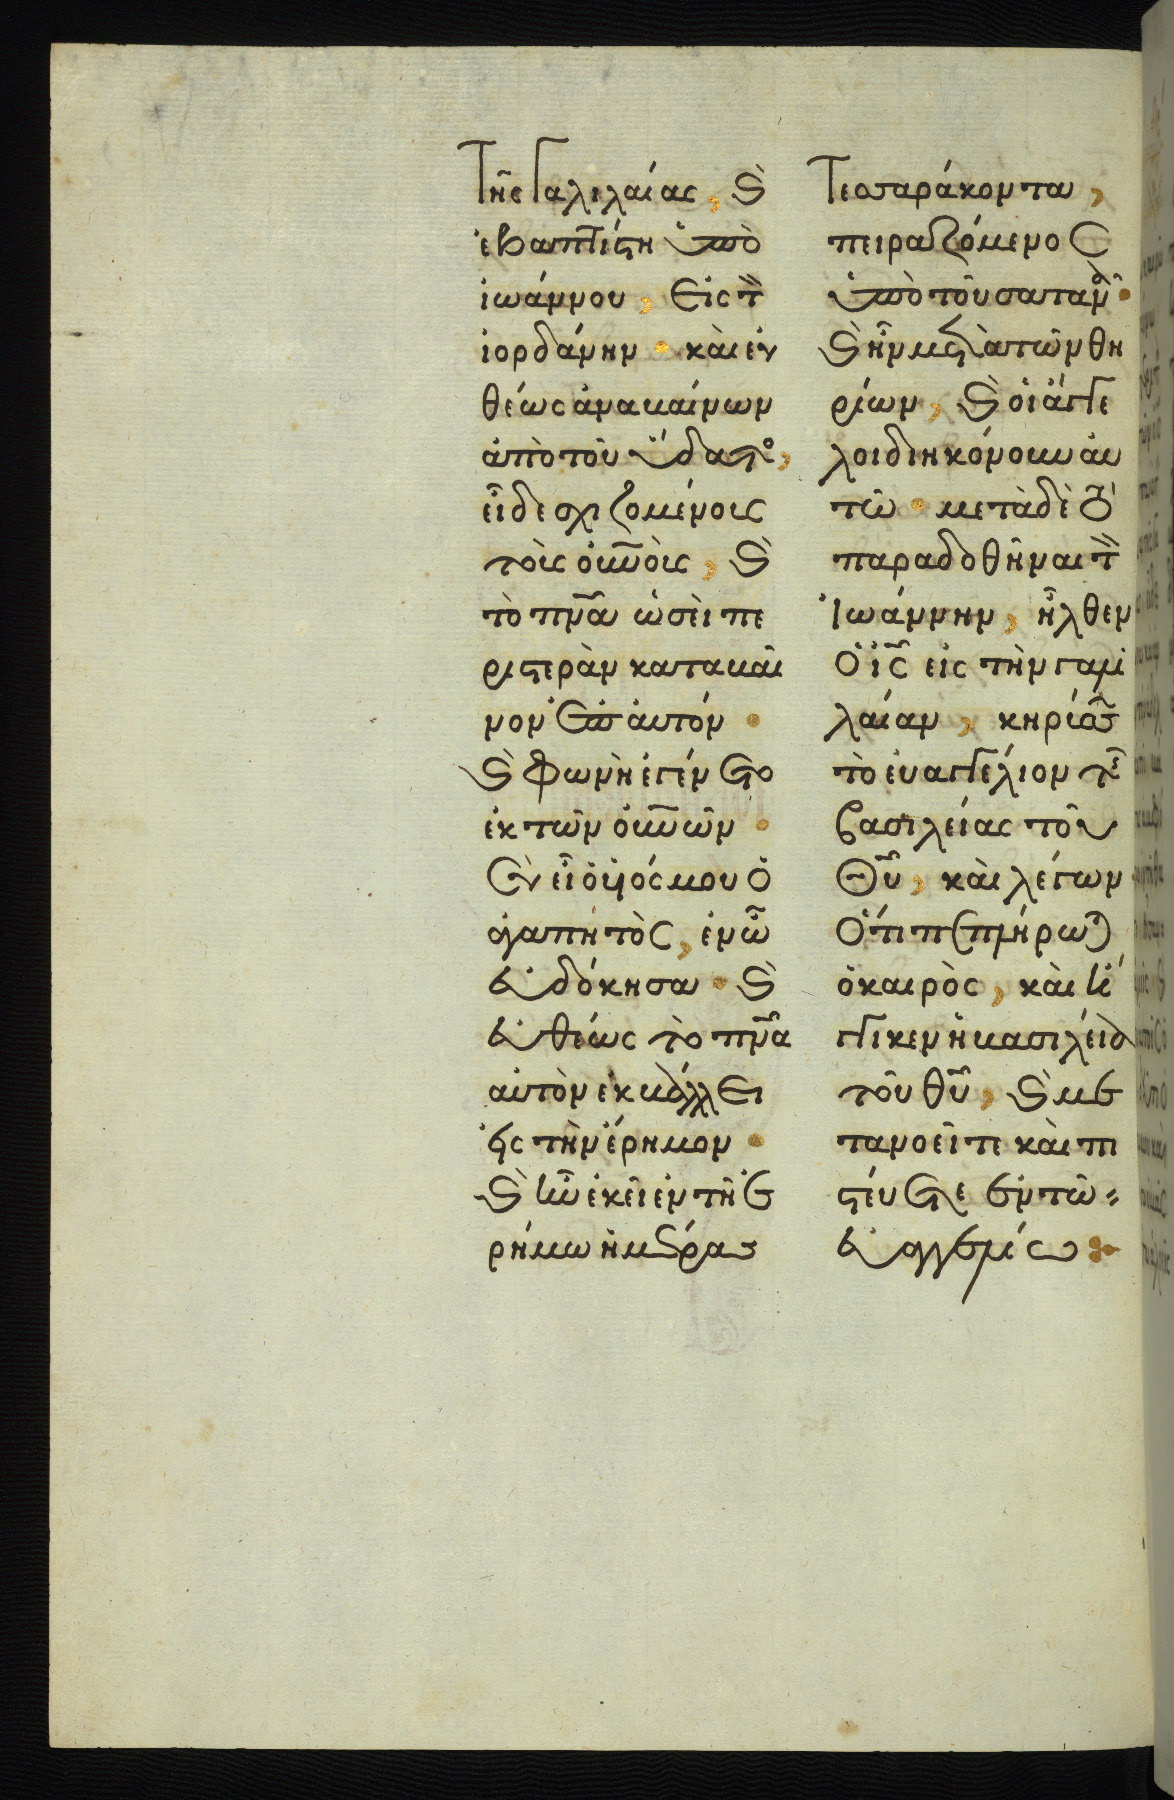 Τῆς Γαλιλαίας, ϗ̀
ἐβαπτίσθη ὑπὸ
ἰωάννου, εἰς τ̀
ἰορδάνην · κὰι ἐυ
θέως ἀναβαίνων
ἀπὸ τοῦ ὕδατο,
εἶδε σχιζομένοις
τοὶς ὀυνοὶς, ϗ̀
τὸ πνᾶ ὡσεὶ πε
ριστερὰν καταβαῖ
νον ἐπ αὐτόν ·
ϗ̀ φωνὴ ἐγένετο
ἐκ τῶν ὀυνῶν ·
Σὺ εἶ ὁ ὑιός μου ὁ
ἀγαπητὸς, ἐν ὧ
ἐυδόκησα · ϗ̀
ἐυθέως τὸ πνᾶ
αὐτὸν ἐκβάλλει
εἰς τὴν ἔρημον ·
ϗ̀ ἦν ἐκεῖ ἐν τῆ ἐ
ρήμω ἡμέρας
Τεσσαράκοντα,
πειραζόμενος
ὑπὸ τοῦ σατανᾶ ·
ϗ̀ ἦν μετὰ τῶν θη
ρίων, ϗ̀ ὁι ἄγγε
λοι διηκόνουν ἀυ
τῶ · μετὰ δὲ τὸ
παραδοθῆναι τ̀
Ἰωάννην, ἦλθεν
Ὁ ἰς εἰς τὴν γαλι
λαίαν, κηρύσς
τὸ ἐυαγγέλιον τῆς
βασιλείας τοῦ
Θῦ, κὰι λέγων
Ὅτι πεπλήρωτ
ὁ καιρὸς, κὰι ἤ
γγικεν ἡ βασιλεία
τοῦ θῦ, ϗ̀ με
τανοεῖτε κὰι πι
στέυετε ἐν τῶ
ἐυαγγελίω